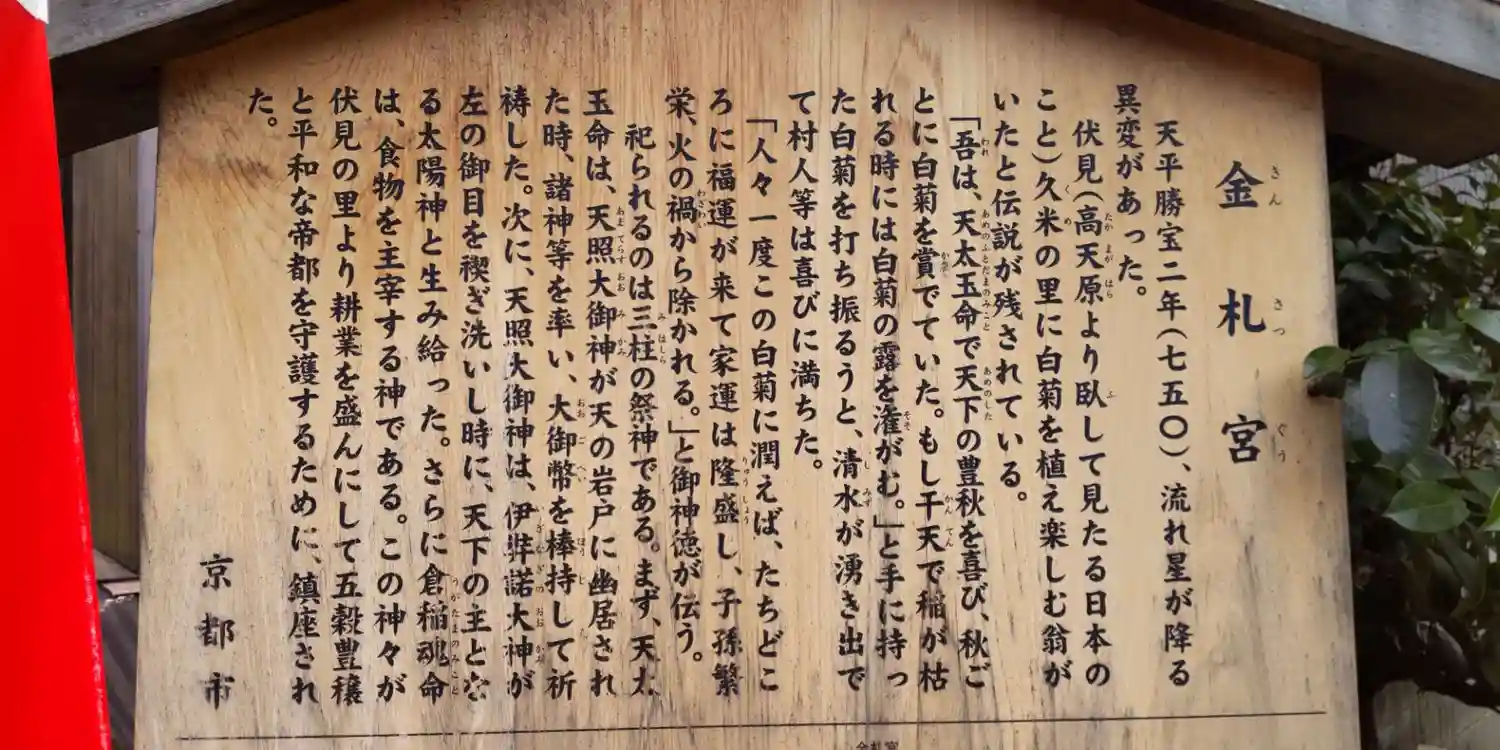 金札宮
天平勝宝二年(七五〇)、流れ星が降る
異変があった。
伏見(高天原より臥して見たる日本の
こと)久米の里に白菊を植え楽しむ翁が
いたと伝説が残されている。
「吾は、天太玉命で天下の豊秋を喜び、秋ご
とに白菊を賞でていた。もし干天で稲が枯
れる時には白菊の露を潅がむ。」と手に持っ
た白菊を打ち振るうと、清水が湧き出で
て村人等は喜びに満ちた。
「人々一度この白菊に潤えば、たちどこ
ろに福運が来て家運は隆盛し、子孫繁
栄、火の禍から除かれる。」と御神徳が伝う。
祀られるのは三柱の祭神である。まず、天太
玉命は、天照大御神が天の岩戸に幽居され
た時、諸神等を率い、大御幣を棒持して祈
祷した。次に、天照大御神は、伊弉諾大神が
左の御目を禊ぎ洗いし時に、天下の主とな
る太陽神と生み給った。さらに倉稲魂命
は、食物を主宰する神である。この神々が
伏見の里より耕業を盛んにして五穀豊穣
と平和な帝都を守護するために、鎮座され
た。
京都市
金札宮